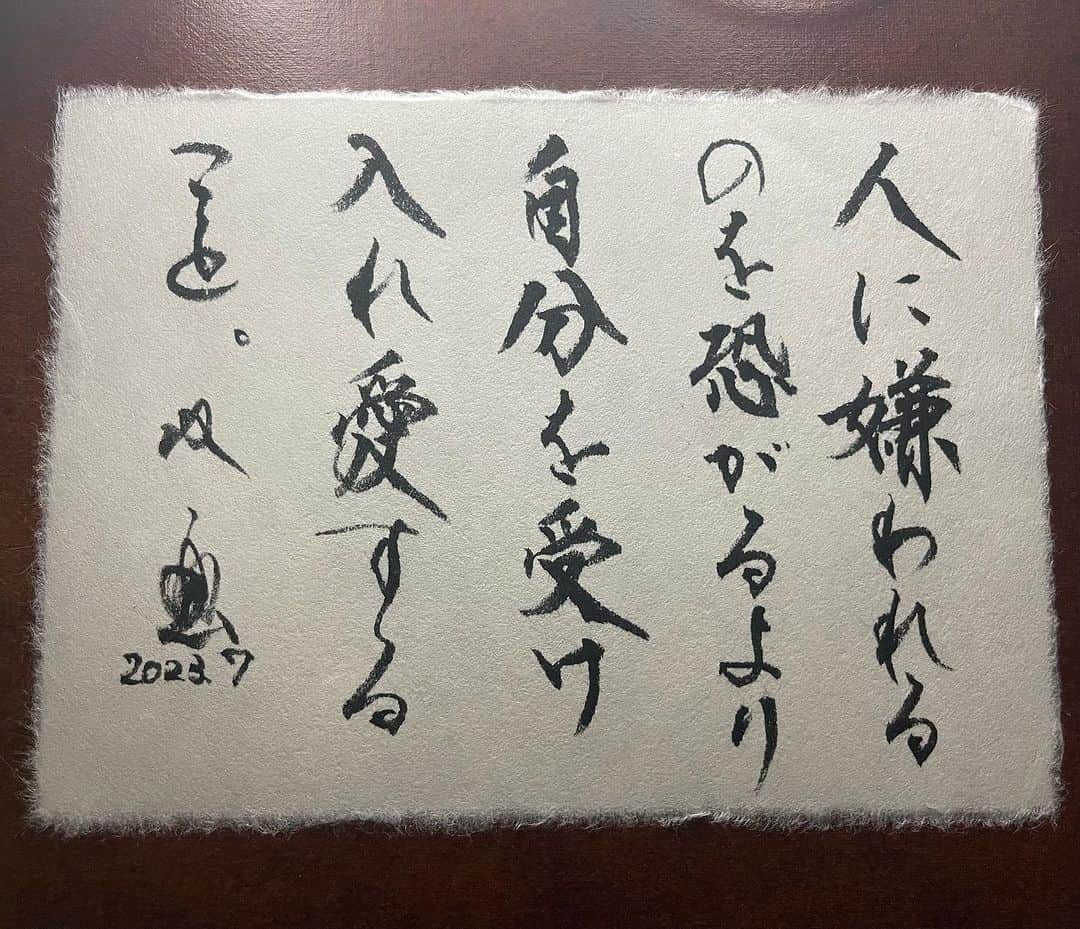 人に嫌われる
のを恐がるより
自分を受け
入れ愛する
こと。
2023.7